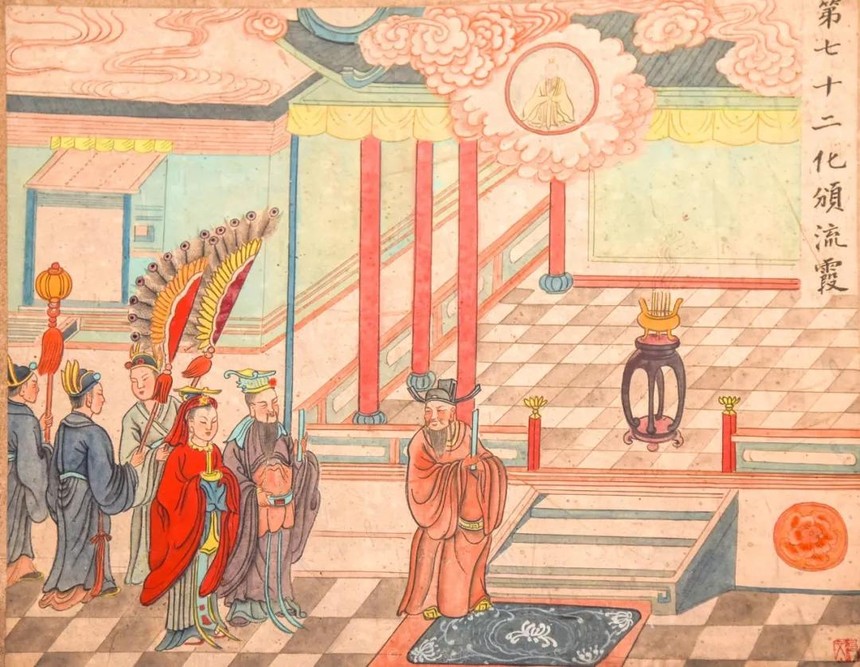 第七十二化頒流霞